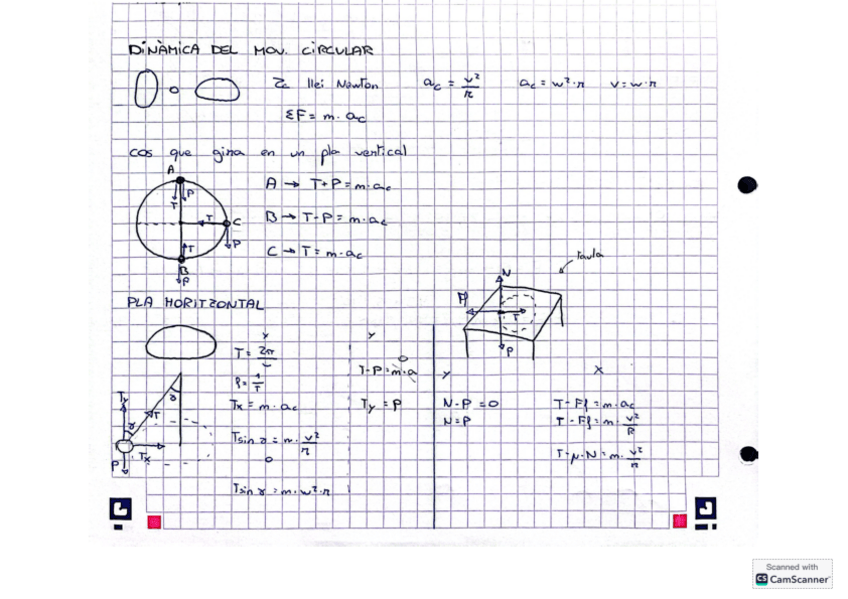 DINÀMICA DEL MOV. CIRCULAR
2a llei Newton
ac = v²/r
ac = w²·r
v = w·r
ΣF = m·ac
cos que gira en un pla vertical
A
P
T
T
C
P
T
B
P
A → T+P = m·ac
B → T-P = m·ac
C → T = m·ac
taula
N
Ff
T
P
PLA HORITZONTAL
Ty
T
P
Tx
x
f = 1/T
Tx = m·ac
= m·v²/r
o
= m·w²·r
y
T-P = m·a
0
Ty = P
y
N-P = 0
N = P
x
T - Ff = m·ac
T - Ff = m·v²/R
T - μ·N = m·v²/r
Scanned with
CS CamScanner